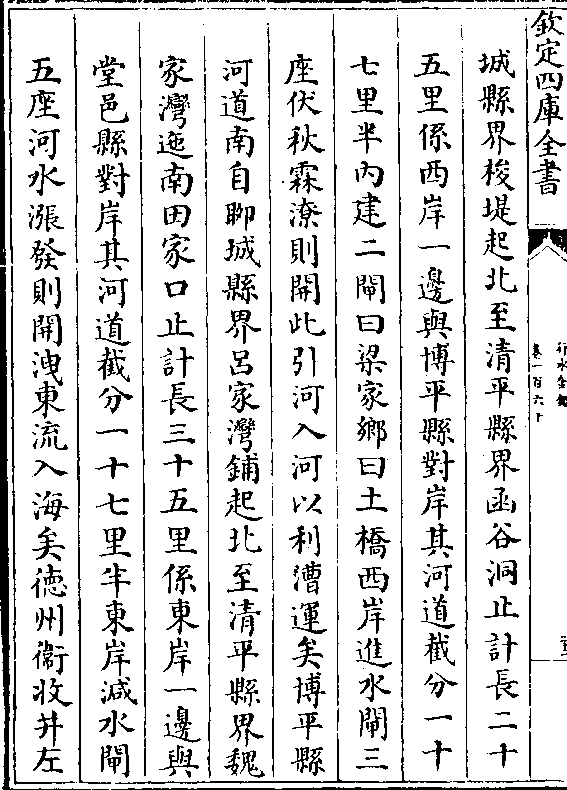 欽定四庫全書
行水金鑑
卷一百六十
城縣界梭堤起北至清平縣界函谷洞止計長二十
五里係西岸一邊與博平縣對岸其河道截分一十
七里半內建二閘曰梁家鄉曰土橋西岸進水閘三
座伏秋霖潦則開此引河入河以利漕運矣博平縣
河道南自聊城縣界呂家灣鋪起北至清平縣界魏
家灣迤南田家口止計長三十五里係東岸一邊與
堂邑縣對岸其河道截分一十七里半東岸減水閘
五座河水漲發則開洩東流入海矣德州衛收并左